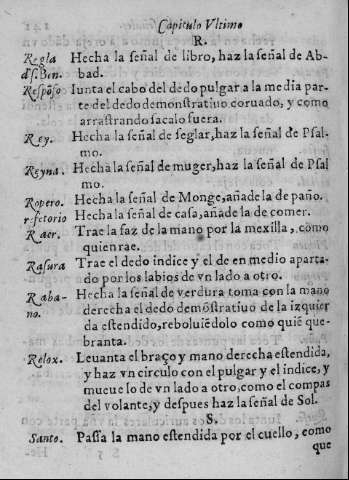 Capitulo Vltimo
R.
Regla Hecha la señal de libro, haz la señal de Ab-
d's. Ben. bad.
Respõso Iunta el cabo del dedo pulgar a la media par-
te del dedo demonstratiuo coruado, y como
arrastrando sacalo fuera.
Rey. Hecha la señal de seglar, haz la señal de Psal-
mo.
Reyna. Hecha la señal de muger, haz la señal de Psal
mo.
Ropero. Hecha la señal de Monge, añade la de paño.
refetorio Hecha la señal de casa, añade la de comer.
Raer. Trae la faz de la mano por la mexilla, como
quien rae.
Rasura Trae el dedo indice y el de en medio aparta-
do por los labios de vn lado a otro.
Raba- Hecha la señal de verdura toma con la mano
no. derecha el dedo demõstratiuo de la izquier
da estendido, reboluiẽdolo como quiẽ que-
branta.
Relox. Leuanta el braço y mano derecha estendida,
y haz vn circulo con el pulgar y el indice, y
mueue lo de vn lado a otro, como el compas
del volante, y despues haz la señal de Sol.
S.
Santo. Passa la mano estendida por el cuello, como
que